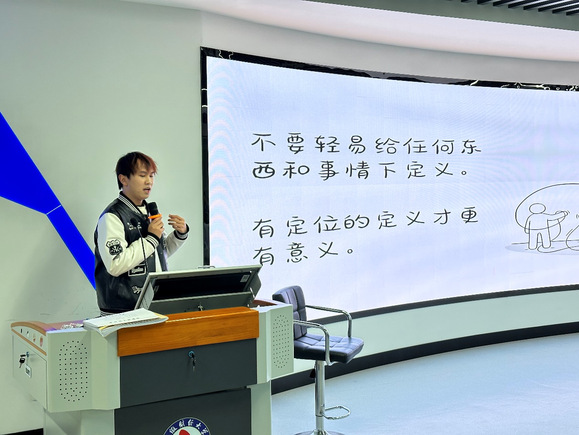 不要轻易给任何东
西和事情下定义。
有定位的定义才更
有意义。